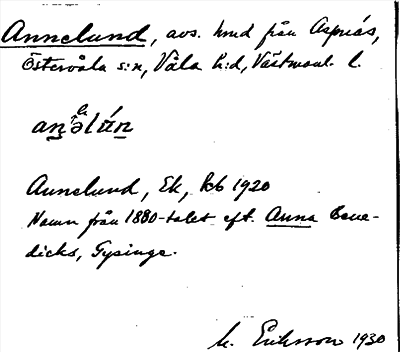 Annelund, avs. hmd från Aspnäs,
Östervåla s:n, Våla h:d, Västmanl. l.
Annelund, Ek, kb 1920
Namn från 1880-talet eft. Anna Bene-
dicks, Gysinge.
M. Eriksson 1930